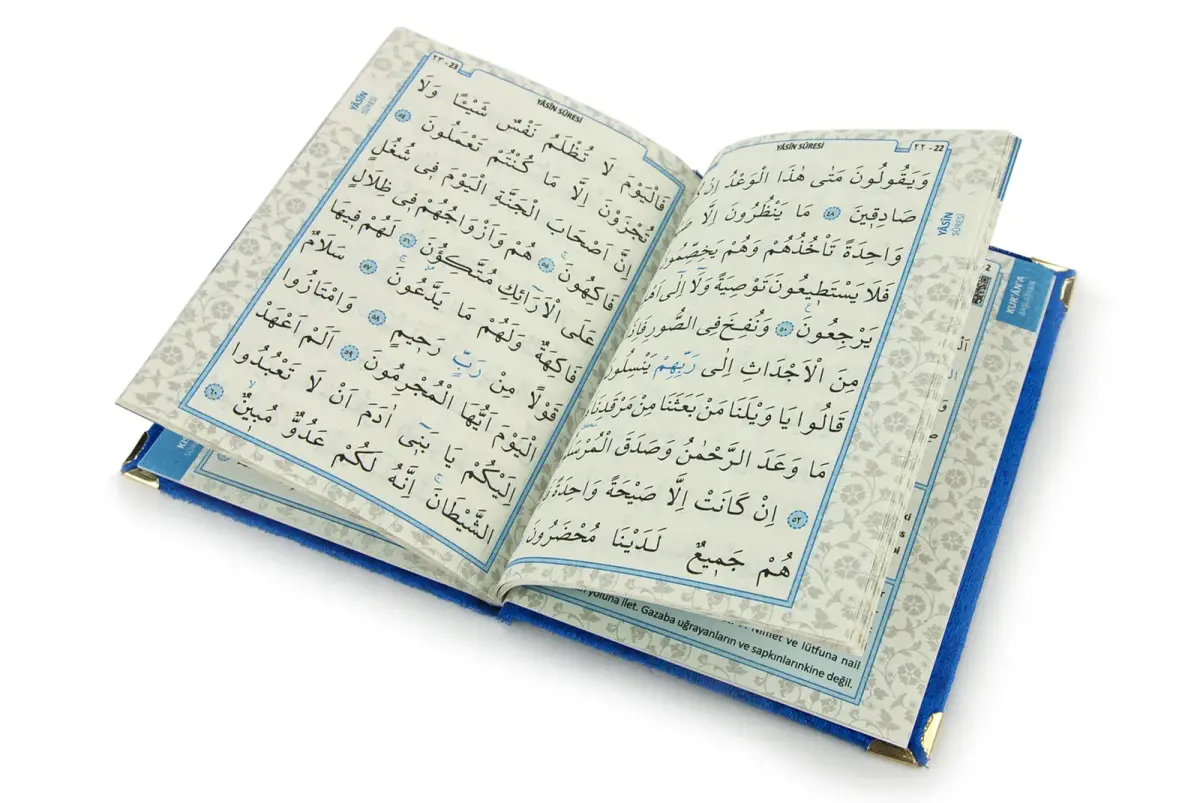 ٢٢ - 22
YÂSÎN SÛRESİ
وَيَقُولُونَ مَتٰى هٰذَا الْوَعْدُ اِنْ
صَادِقٖينَ ٤٨ مَا يَنْظُرُونَ اِلَّا
وَاحِدَةً تَأْخُذُهُمْ وَهُمْ يَخِصِّمُونَ
فَلَا يَسْتَطٖيعُونَ تَوْصِيَةً وَلَٓا اِلٰٓى
يَرْجِعُونَ ٥٠ وَنُفِخَ فِى الصُّورِ
مِنَ الْاَجْدَاثِ اِلٰى رَبِّهِمْ يَنْسِلُونَ
قَالُوا يَا وَيْلَنَا مَنْ بَعَثَنَا مِنْ مَرْقَدِنَا
مَا وَعَدَ الرَّحْمٰنُ وَصَدَقَ
٥٢ اِنْ كَانَتْ اِلَّا صَيْحَةً وَاحِدَةً
هُمْ جَمٖيعٌ لَدَيْنَا مُحْضَرُونَ
YÂSÎN
SÛRESİ
٢٣ - 23
YÂSÎN SÛRESİ
فَالْيَوْمَ لَا تُظْلَمُ نَفْسٌ شَيْـًٔا وَلَا
تُجْزَوْنَ اِلَّا مَا كُنْتُمْ تَعْمَلُونَ ٥٤
اِنَّ اَصْحَابَ الْجَنَّةِ الْيَوْمَ فٖى شُغُلٍ
فَاكِهُونَ ٥٥ هُمْ وَاَزْوَاجُهُمْ فٖى ظِلَالٍ
عَلَى الْاَرَٓائِكِ مُتَّكِؤُ۫نَ ٥٦ لَهُمْ فٖيهَا
فَاكِهَةٌ وَلَهُمْ مَا يَدَّعُونَ ٥٧ سَلَامٌ
قَوْلًا مِنْ رَبٍّ رَحٖيمٍ ٥٨ وَامْتَازُوا
الْيَوْمَ اَيُّهَا الْمُجْرِمُونَ ٥٩ اَلَمْ اَعْهَدْ
اِلَيْكُمْ يَا بَنٖٓى اٰدَمَ اَنْ لَا تَعْبُدُوا
الشَّيْطَانَ اِنَّهُ لَكُمْ عَدُوٌّ مُبٖينٌ ٦٠
YÂSÎN
SÛRESİ
KUR'ÂN'A
2
yoluna ilet. Gazaba uğrayanların ve sapkınlarınkine değil.
ve lütfuna nail